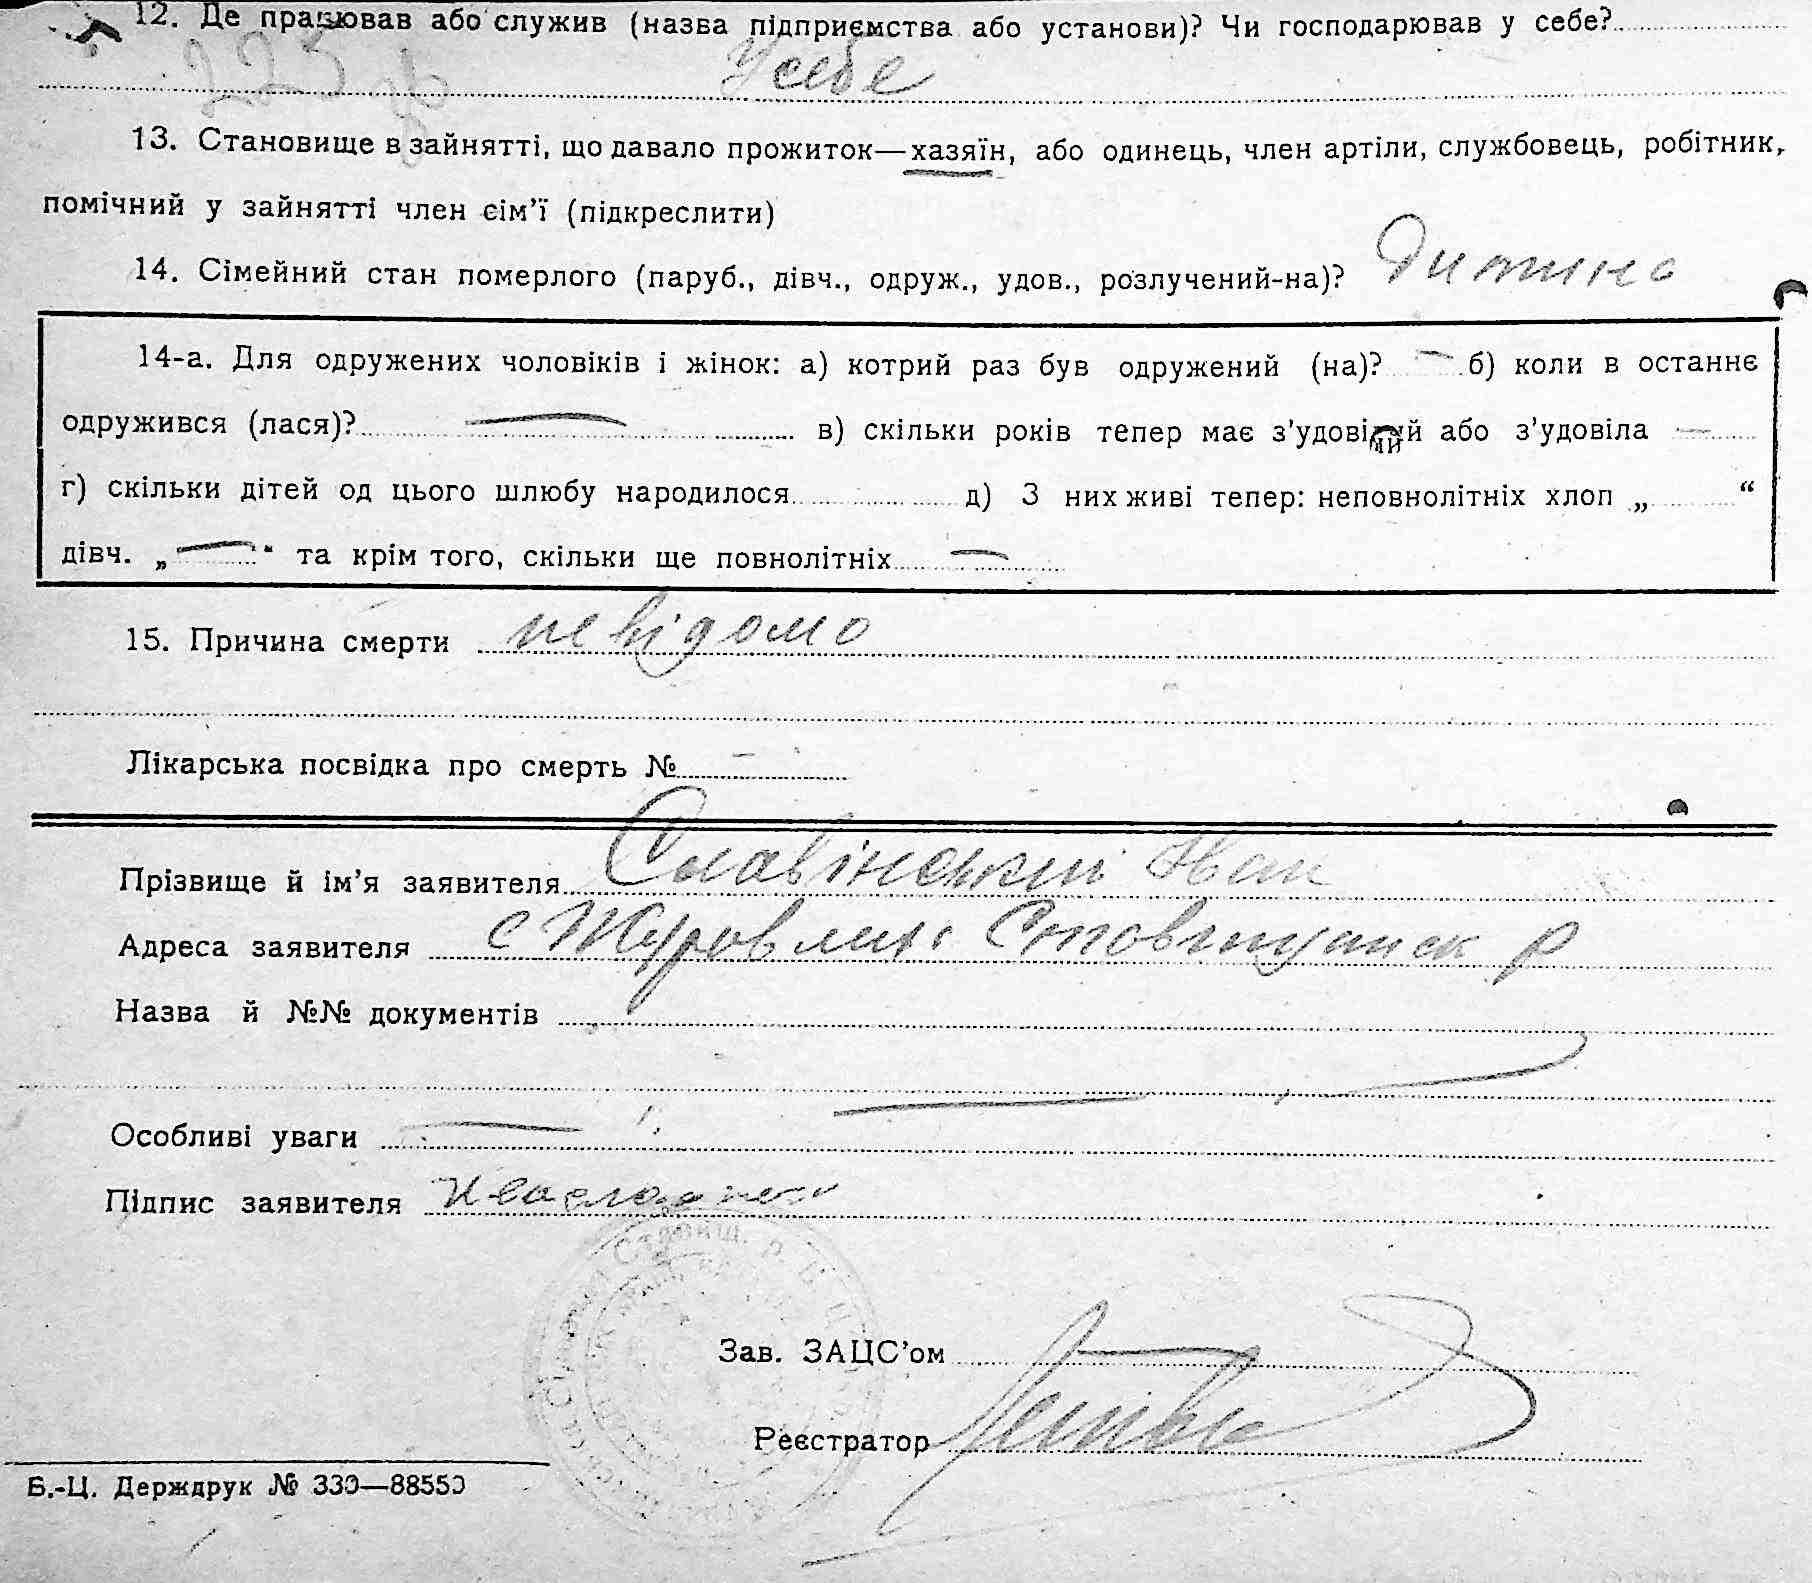 12. Де працював або служив (назва підприємства або установи)? Чи господарював у себе?
225
У себе
13. Становище в зайнятті, що давало прожиток—хазяїн, або одинець, член артіли, службовець, робітник,
помічний у зайнятті член сім’ї (підкреслити)
14. Сімейний стан померлого (паруб., дівч., одруж., удов., розлучений-на)? Дитина
14-а. Для одружених чоловіків і жінок: а) котрий раз був одружений (на)? — б) коли в останнє
одружився (лася)? — в) скільки років тепер має з’удовілий або з’удовіла —
г) скільки дітей од цього шлюбу народилося д) З них живі тепер: неповнолітніх хлоп „ “
дівч. „ — “ та крім того, скільки ще повнолітніх —
15. Причина смерти невідомо
Лікарська посвідка про смерть № —
Прізвище й ім’я заявителя Славінський Іван
Адреса заявителя с Журовлиха р
Назва й №№ документів
Особливі уваги —
Підпис заявителя
Зав. ЗАЦС’ом
Реєстратор
Б.-Ц. Держдрук № 330—88550